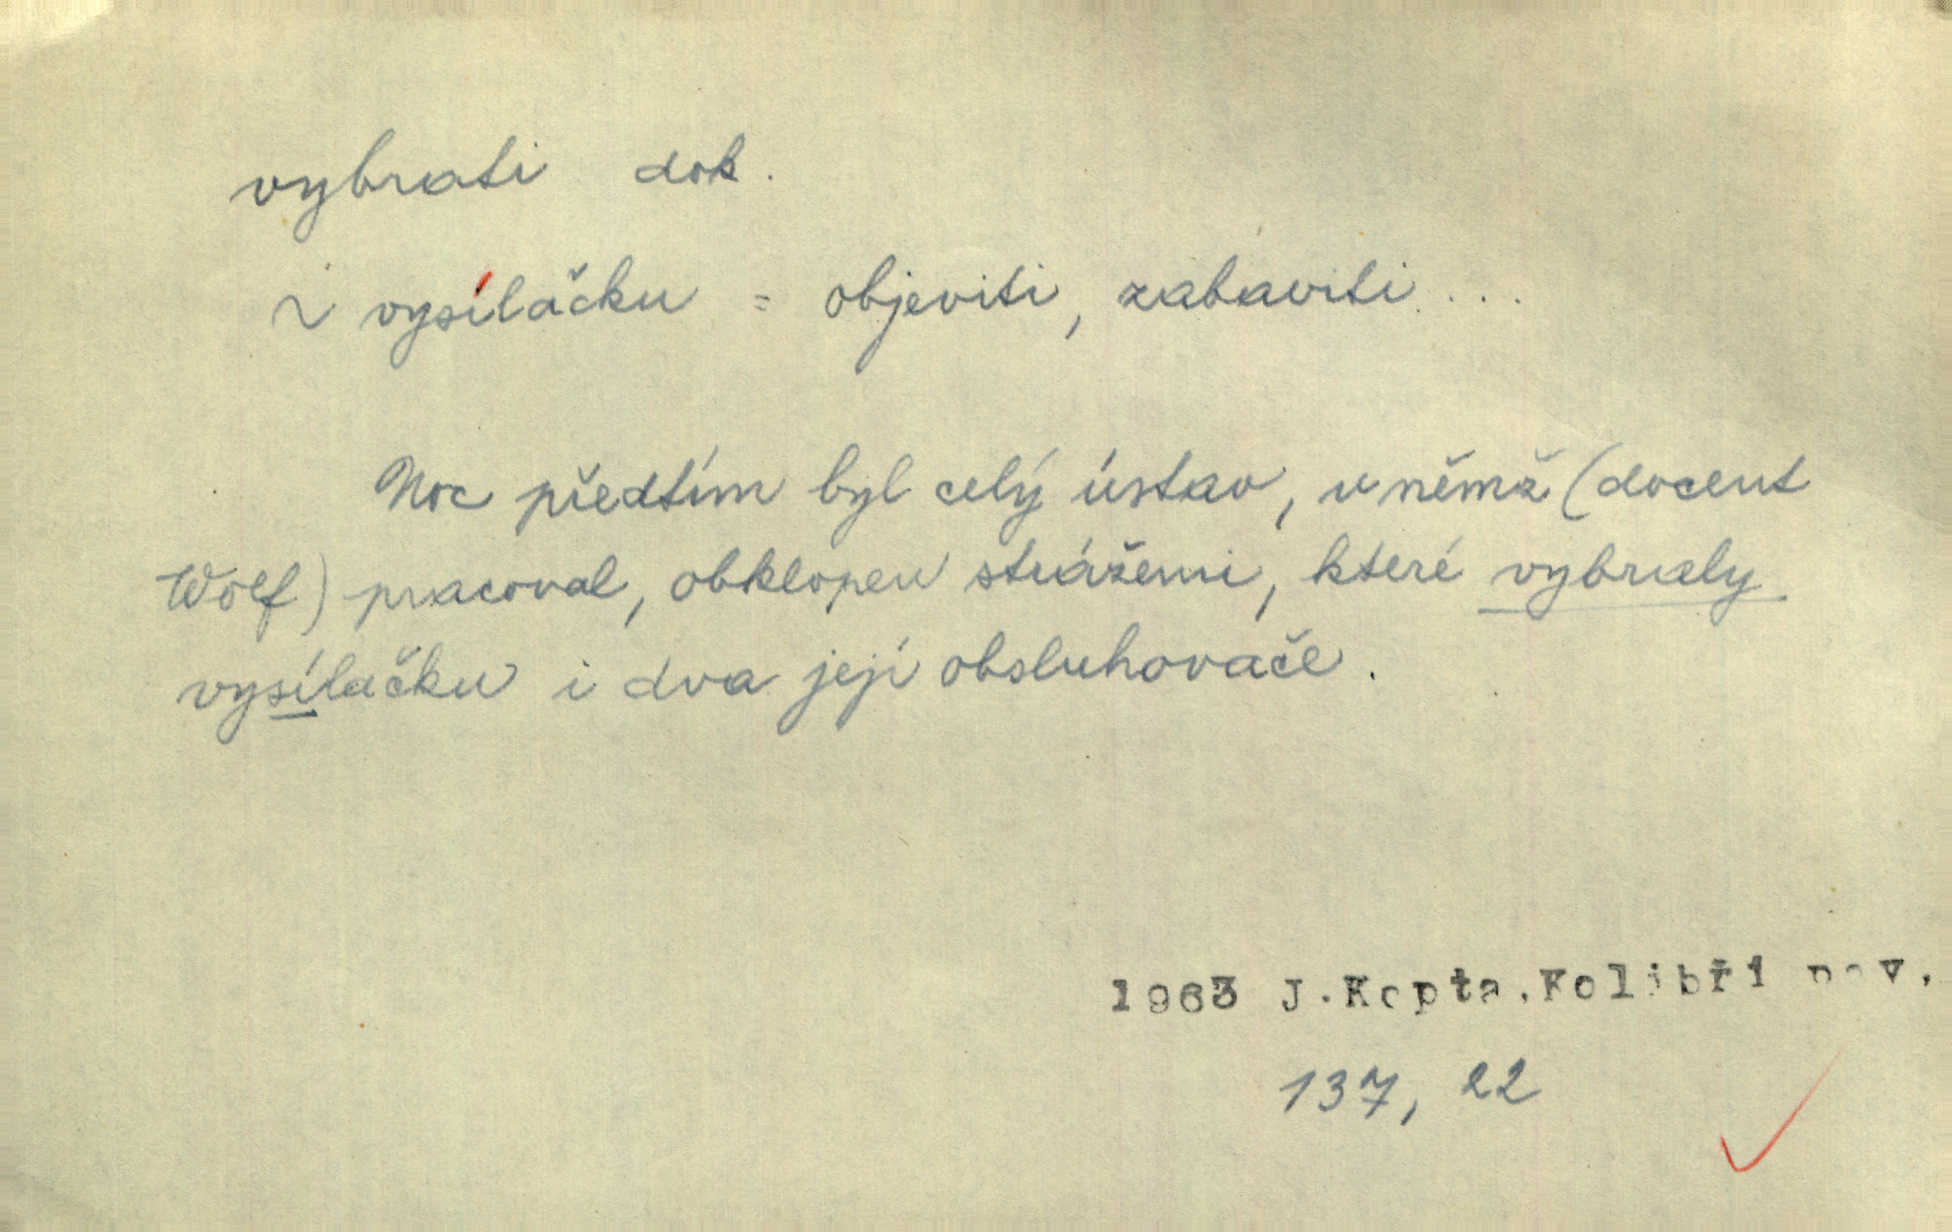 vybrati dok.
~ vysílačku = objeviti, zabaviti...
Noc předtím byl celý ústav, v němž (docent
Wolf) pracoval, obklopen strážemi, které vybraly
vysílačku i dva její obsluhovače.
1963 J.Kopta.Kolibří nov.
137, 22